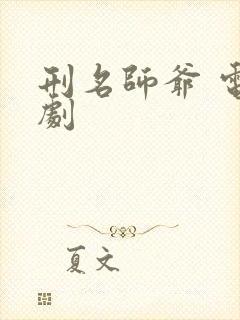 刑名師爺 電
劇
夏文